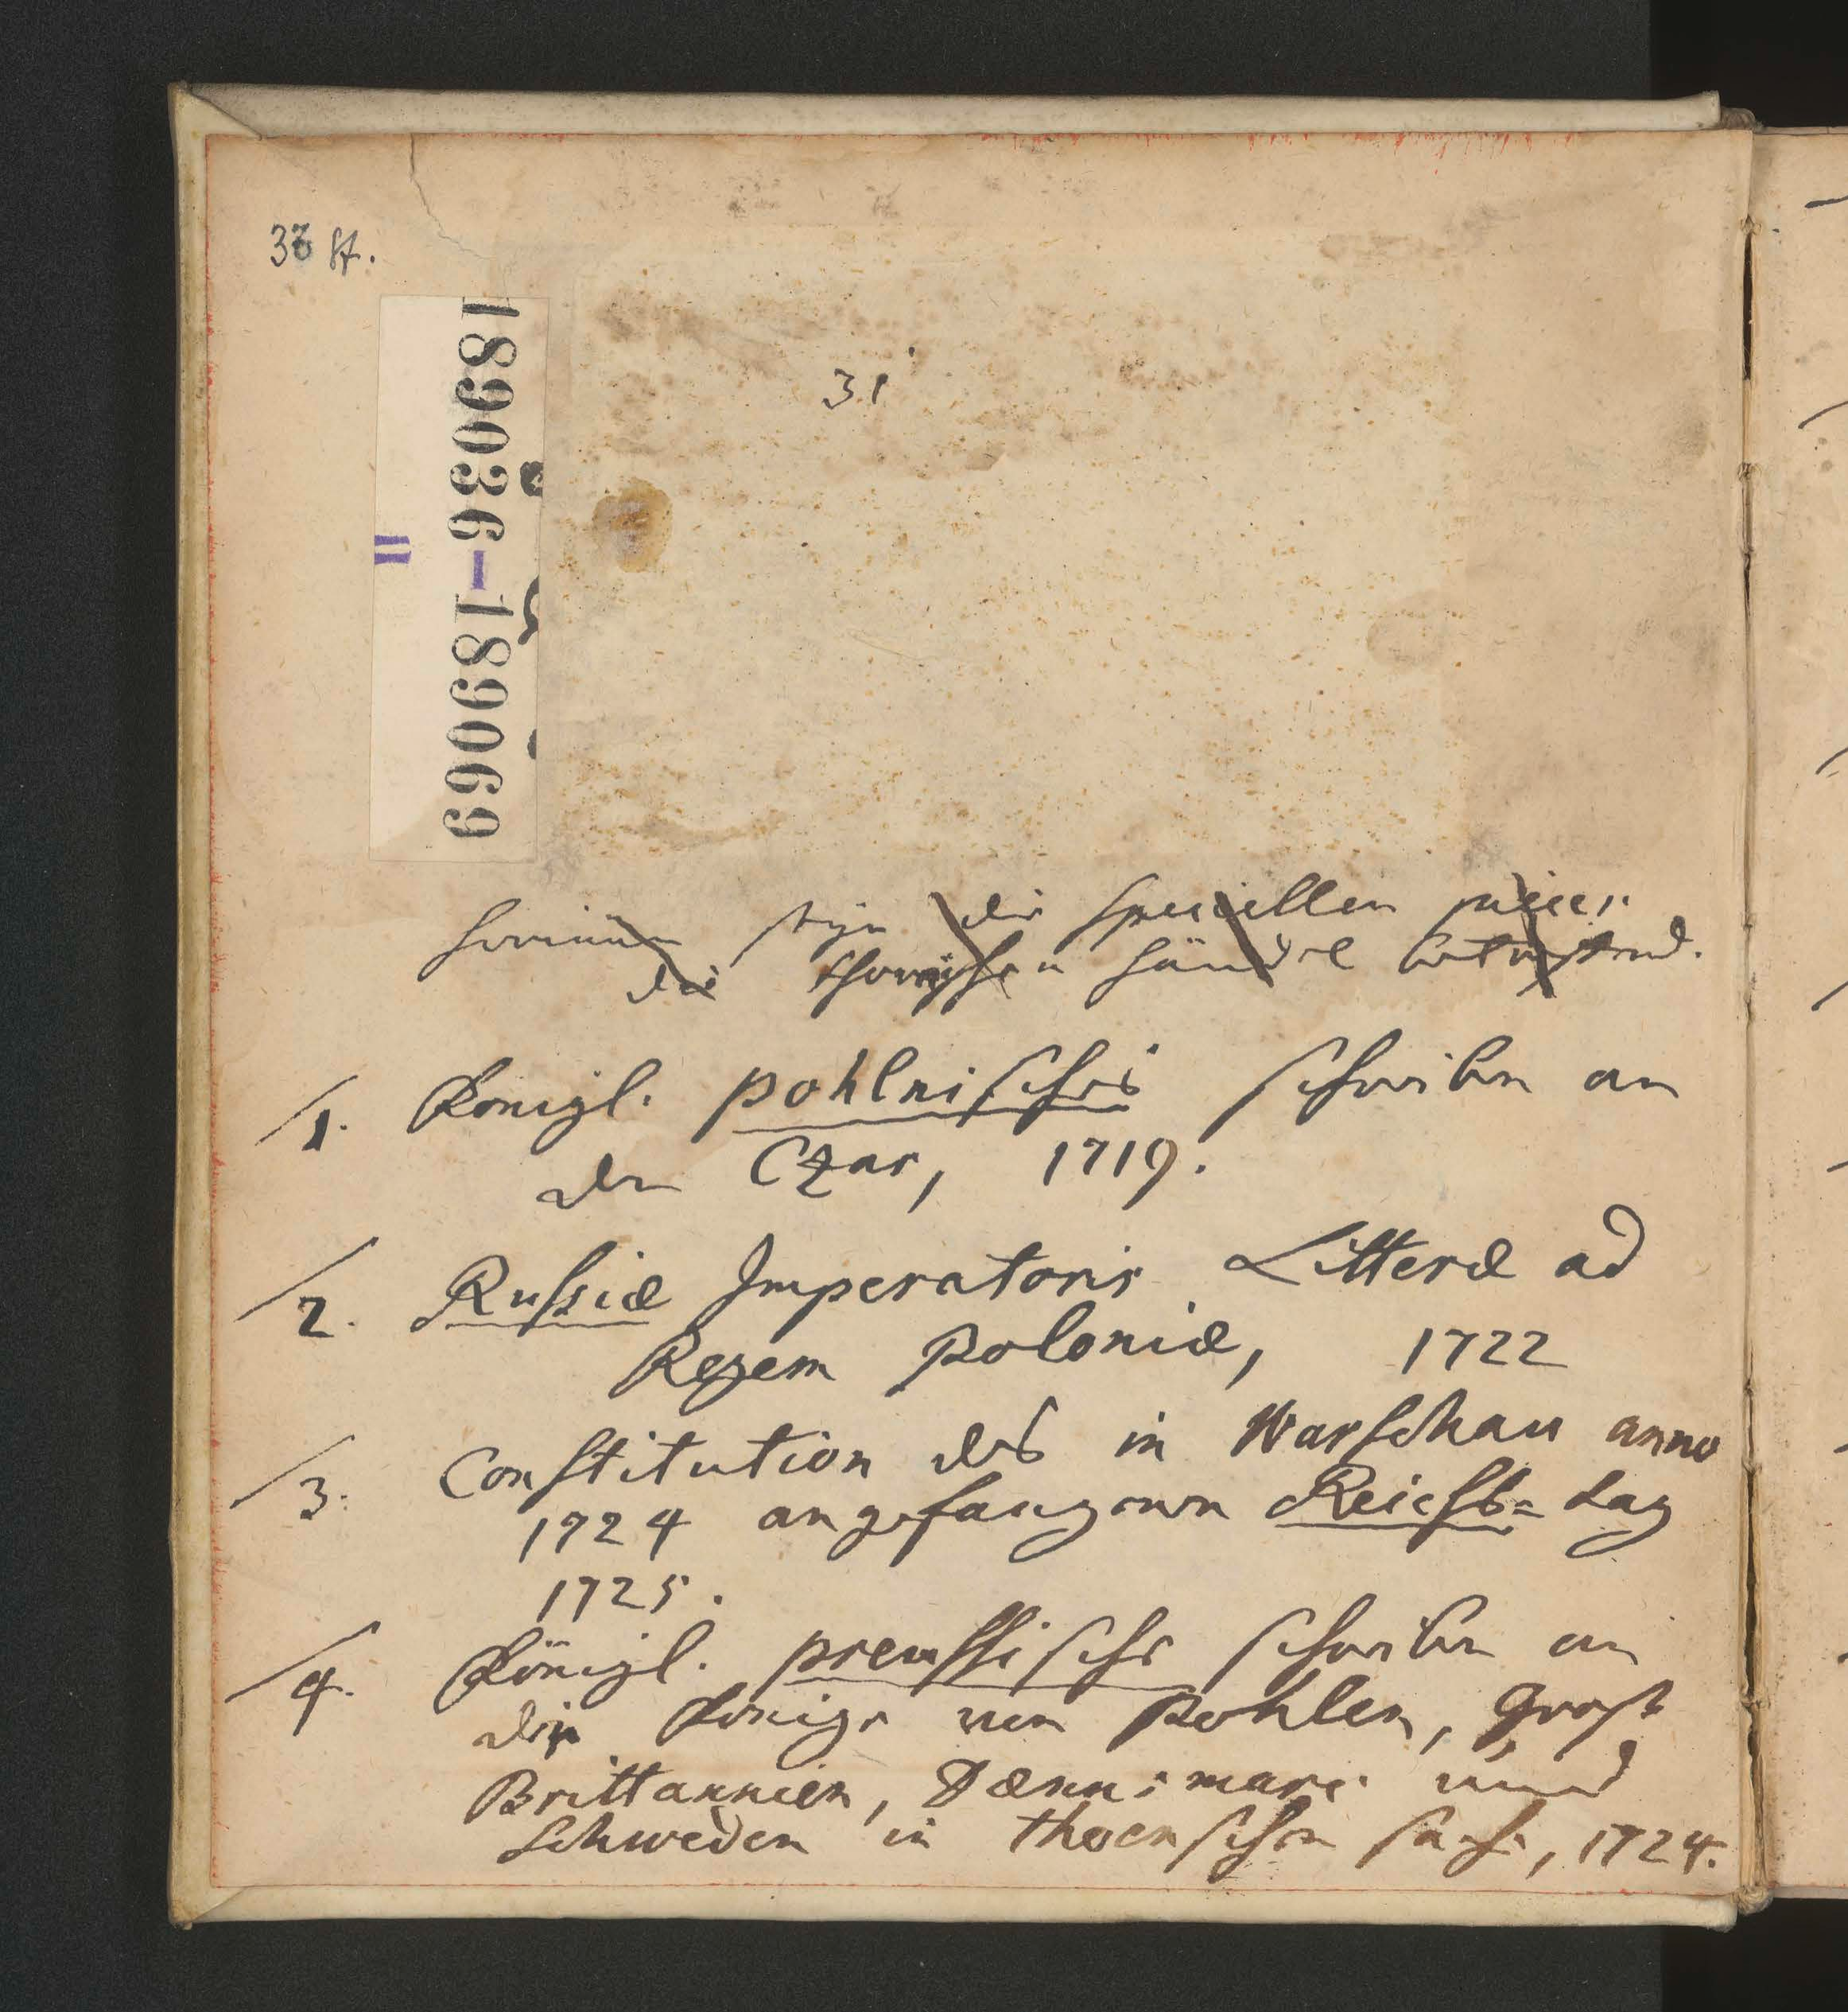 33 st.
189036-189069
=
31
hierinnen seyn die speciellen piecen
die thornischen händel betreffend.
1. Königl. pohlnisches schreiben an
den Czar, 1719.
2. Russiæ Imperatoris Litteræ ad
Regem Poloniæ, 1722
3. Constitution des in Warschau anno
1724 angefangenen Reichs=tag
1725.
4. Königl. preussische schreiben an
die Könige von Pohlen, Gross
Brittannien, Dænnemarc und
Schweden in thoenschen sache, 1724.